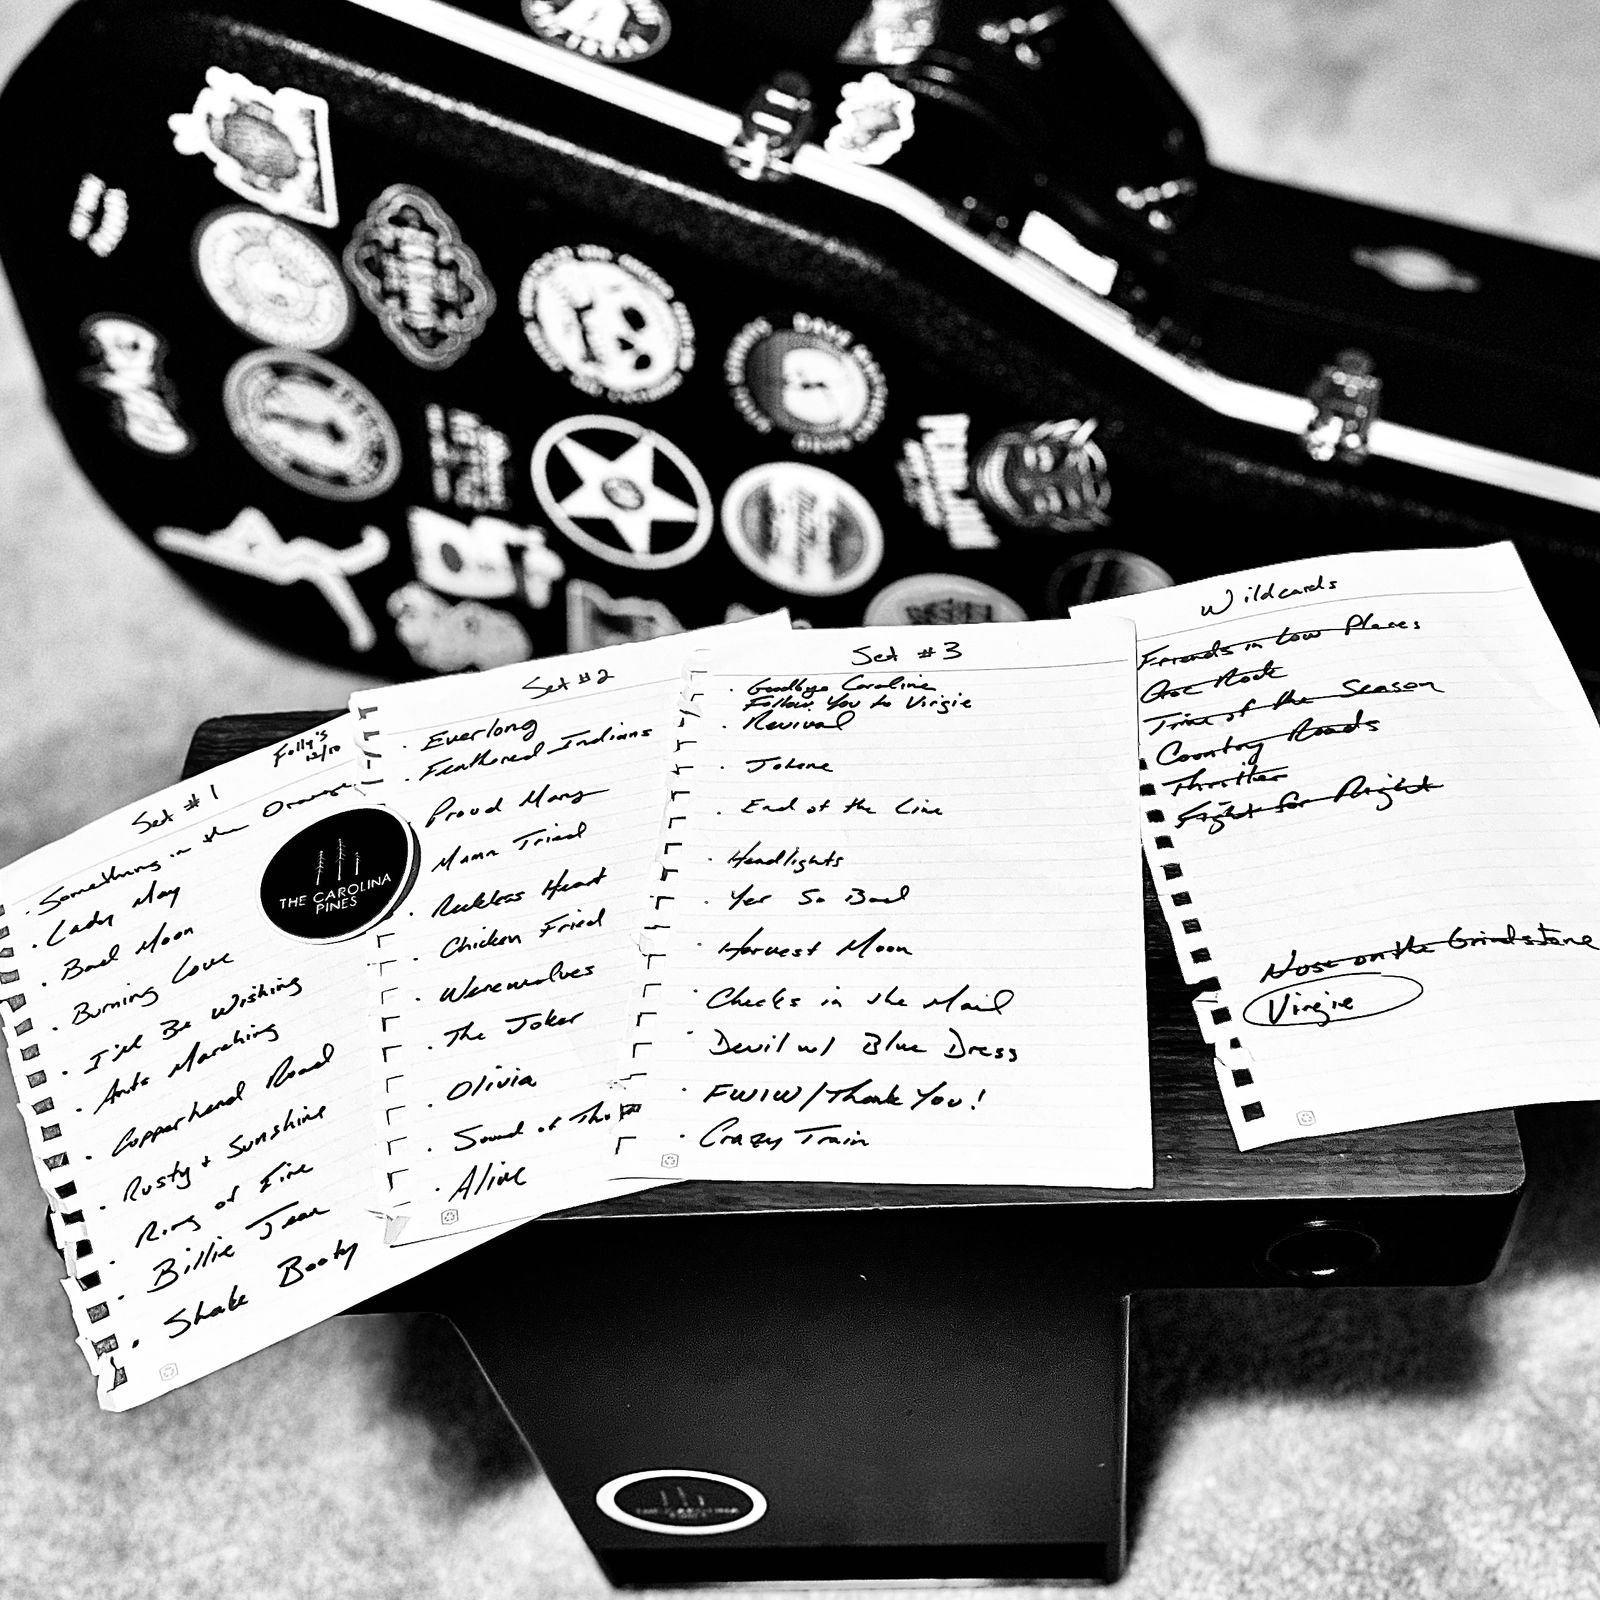 Folly's
12/10
Set #1
Something in the Orange
Lady May
Bad Moon
Burning Love
I'll Be Wishing
Ants Marching
Copperhead Road
Rusty + Sunshine
Ring of Fire
Billie Jean
Shake Booty
THE CAROLINA
PINES
Set #2
Everlong
Feathered Indians
Proud Mary
Mama Tried
Reckless Heart
Chicken Fried
Werewolves
The Joker
Olivia
Sound of
Alive
Set #3
Goodbye Caroline
Follow You to Virgie
Revival
Jolene
End of the Line
Headlights
Yer So Bad
Harvest Moon
Checks in the Mail
Devil w/ Blue Dress
FWIW/Thank You!
Crazy Train
Wildcards
Friends in Low Places
Time of the Season
Country Roads
Thriller
Fight for Right
Nose on the Grindstone
Virgie
PEARL JAM